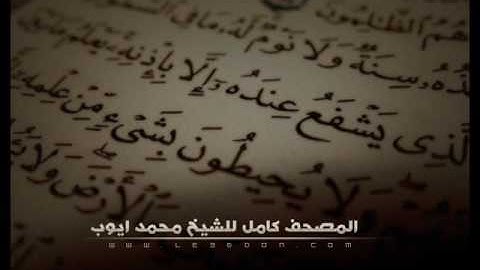 هُمُ ٱلظَّٰلِمُونَ
سِنَةٌ وَلَا نَوْمٌ لَّهُۥ مَا فِى
ٱلَّذِى يَشْفَعُ عِندَهُۥٓ إِلَّا بِإِذْنِهِۦ يَعْلَمُ
وَلَا يُحِيطُونَ بِشَىْءٍ مِّنْ عِلْمِهِۦٓ
وَٱلْأَرْضَ وَلَا
المصحف كامل للشيخ محمد ايوب